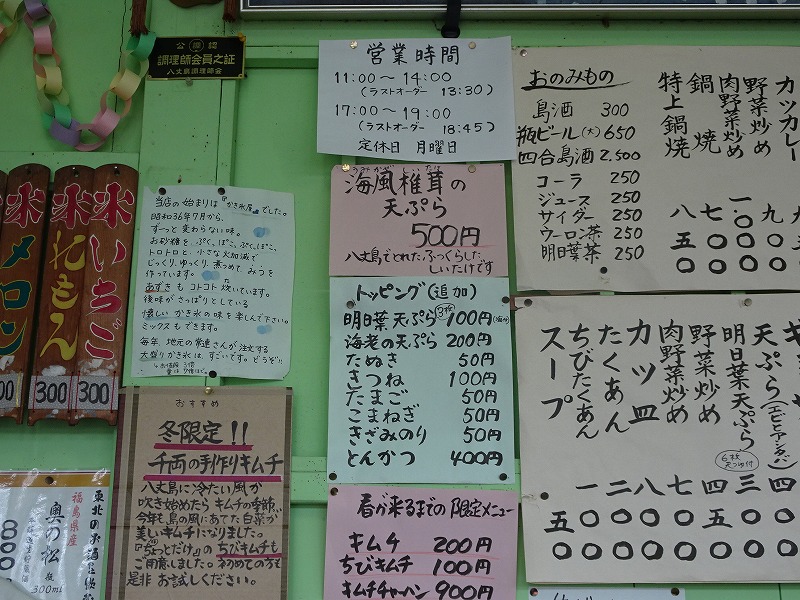 公認
調理師会員之証
八丈島調理師会
営業時間
11:00～14:00
(ラストオーダー 13:30)
17:00～19:00
(ラストオーダー 18:45)
定休日 月曜日
おのみもの
島酒 300
瓶ビール(大) 650
四合島酒 2.500
コーラ 250
ジュース 250
サイダー 250
ウーロン茶 250
明日葉茶 250
カツカレー
野菜炒め 九
肉野菜炒め 一.〇〇〇
鍋焼 七〇〇
特上鍋焼 八五〇
海風椎茸の
天ぷら
500円
八丈島でとれた、ふっくらした、
しいたけです
当店の始まりは『かき氷屋』でした。
昭和36年7月から、
ずーっと変わらない味。
お砂糖を、ぷく、ぽこ、ぷく、ぽこ、
トロトロと、小さな火加減で
じっくり、ゆっくり、煮つめてみつを
作っています。
あずきもコトコト炊いています。
後味がさっぱりとしている
懐しいかき氷の味を楽しんで下さい。
ミックスもできます。
毎年、地元の常連さんが注文する
大盛りかき氷は、すごいです。どうぞ!!
氷いちご
300
氷れもん
300
氷メロン
300
トッピング(追加)
明日葉天ぷら 3枚 100円
海老の天ぷら 200円
たぬき 50円
きつね 100円
たまご 50円
こまねぎ 50円
きざみのり 50円
とんかつ 400円
天ぷら(エビとアシタバ)
明日葉天ぷら 三〇〇
6枚
天つゆ付
野菜炒め 四五〇
肉野菜炒め 七〇〇
カツ皿 八〇〇
たくあん 二〇〇
ちびたくあん 一〇〇
スープ 五〇
おすすめ
冬限定!!
千両の手作りキムチ
八丈島に冷たい風が
吹き始めたらキムチの季節。
今年も島の風にあてた白菜が
美しいキムチになりました。
『ちょっとだけ』のちびキムチも
ご用意しました。初めての方も
是非お試しください。
春が来るまでの限定メニュー
キムチ 200円
ちびキムチ 100円
キムチチャーハン 900円
福島県産
奥の松
300ml